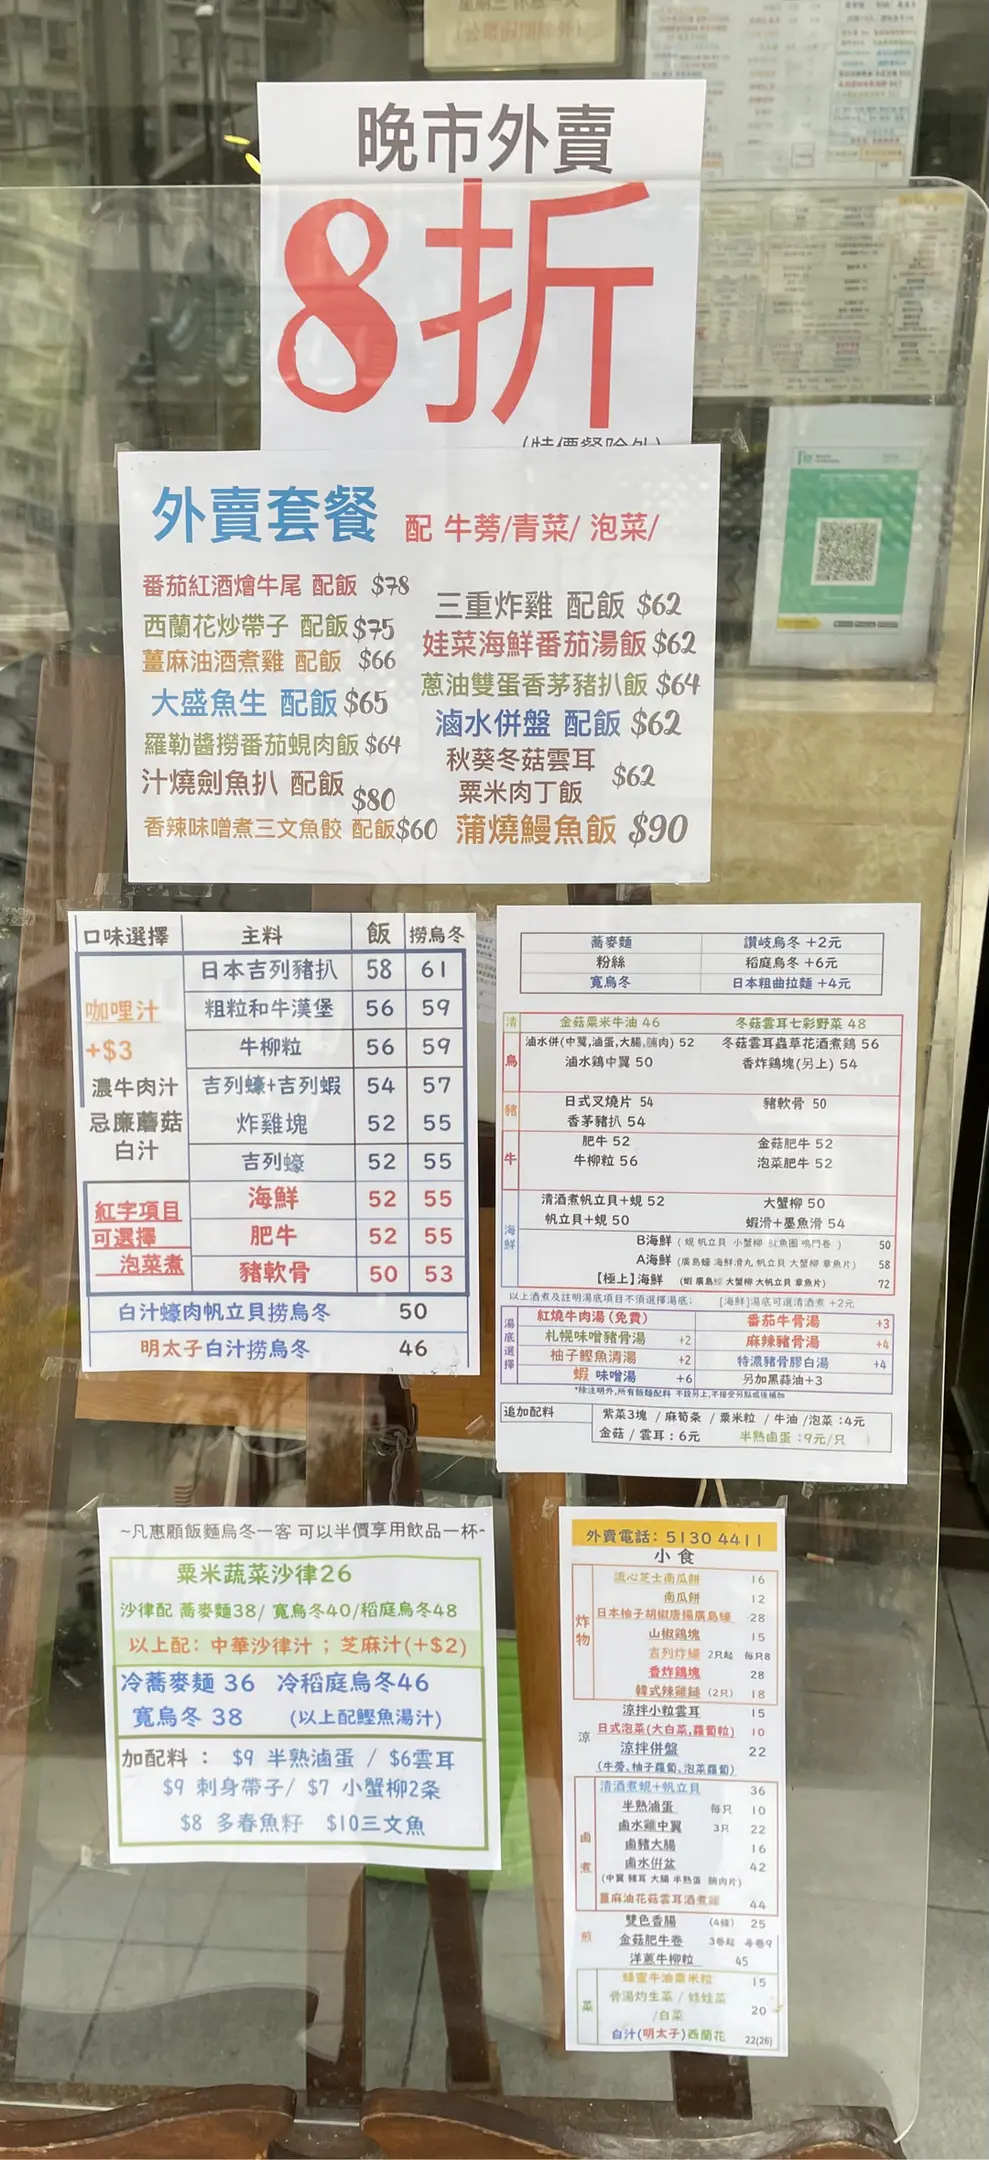 晚市外賣
8折
(特價餐除外)
外賣套餐 配 牛蒡/青菜/ 泡菜/
番茄紅酒燴牛尾 配飯 $78
西蘭花炒帶子 配飯 $75
薑麻油酒煮雞 配飯 $66
大盛魚生 配飯 $65
羅勒醬撈番茄蜆肉飯 $64
汁燒劍魚扒 配飯 $80
香辣味噌煮三文魚餃 配飯 $60
三重炸雞 配飯 $62
娃菜海鮮番茄湯飯 $62
蔥油雙蛋香茅豬扒飯 $64
滷水併盤 配飯 $62
秋葵冬菇雲耳
粟米肉丁飯 $62
蒲燒鰻魚飯 $90
口味選擇 主料 飯 撈烏冬
咖哩汁
+$3
濃牛肉汁
忌廉蘑菇
白汁
日本吉列豬扒 58 61
粗粒和牛漢堡 56 59
牛柳粒 56 59
吉列蠔+吉列蝦 54 57
炸雞塊 52 55
吉列蠔 52 55
紅字項目
可選擇
泡菜煮
海鮮 52 55
肥牛 52 55
豬軟骨 50 53
白汁蠔肉帆立貝撈烏冬 50
明太子白汁撈烏冬 46
蕎麥麵 讚岐烏冬 +2元
粉絲 稻庭烏冬 +6元
寬烏冬 日本粗曲拉麵 +4元
清 金菇粟米牛油 46 冬菇雲耳七彩野菜 48
鳥 滷水併(中翼,滷蛋,大腸,腩肉) 52 冬菇雲耳蟲草花酒煮鷄 56
滷水鷄中翼 50 香炸鷄塊(另上) 54
豬 日式叉燒片 54 豬軟骨 50
香茅豬扒 54
牛 肥牛 52 金菇肥牛 52
牛柳粒 56 泡菜肥牛 52
海鮮 清酒煮帆立貝+蜆 52 大蟹柳 50
帆立貝+蜆 50 蝦滑+墨魚滑 54
B海鮮 (蜆 帆立貝 小蟹柳 魷魚圈 鳴門卷) 50
A海鮮 (廣島蠔 海鮮滑丸 帆立貝 大蟹柳 章魚片) 58
【極上】海鮮 (蝦 廣島蠔 大蟹柳 大帆立貝 章魚片) 72
以上酒煮及註明湯底項目不須選擇湯底; [海鮮]湯底可選清酒煮 +2元
湯底選擇 紅燒牛肉湯 (免費) 番茄牛骨湯 +3
札幌味噌豬骨湯 +2 麻辣豬骨湯 +4
柚子鰹魚清湯 +2 特濃豬骨膠白湯 +4
蝦 味噌湯 +6 另加黑蒜油+3
*除注明外,所有飯麵配料 不設另上,不接受另點或後補加
追加配料 紫菜3塊 / 麻筍条 / 粟米粒 / 牛油 /泡菜 :4元
金菇 / 雲耳 : 6元 半熟鹵蛋 :9元/只
~凡惠顧飯麵烏冬一客 可以半價享用飲品一杯~
粟米蔬菜沙律26
沙律配 蕎麥麵38/ 寬烏冬40/稻庭烏冬48
以上配: 中華沙律汁 ; 芝麻汁(+$2)
冷蕎麥麵 36 冷稻庭烏冬46
寬烏冬 38 (以上配鰹魚湯汁)
加配料 : $9 半熟滷蛋 / $6雲耳
$9 刺身帶子/ $7 小蟹柳2条
$8 多春魚籽 $10三文魚
外賣電話: 5130 4411
小食
炸物
流心芝士南瓜餅 16
南瓜餅 12
日本柚子胡椒唐揚廣島蠔 28
山椒鷄塊 15
吉列炸蠔 2只起 每只8
香炸鷄塊 28
韓式辣雞鎚 (2只) 18
涼
涼拌小粒雲耳 15
日式泡菜(大白菜,蘿蔔粒) 10
涼拌併盤 22
(牛蒡、柚子蘿蔔、泡菜蘿蔔)
鹵煮
清酒煮蜆+帆立貝 36
半熟滷蛋 每只 10
鹵水雞中翼 3只 22
鹵豬大腸 16
鹵水併盆 42
(中翼 豬耳 大腸 半熟蛋 腩肉片)
薑麻油花菇雲耳酒煮雞 44
煎
雙色香腸 (4條) 25
金菇肥牛卷 3卷起 每卷9
洋蔥牛柳粒 45
菜
蜂蜜牛油粟米粒 15
骨湯灼生菜 / 娃娃菜
/白菜 20
白汁(明太子)西蘭花 22(26)